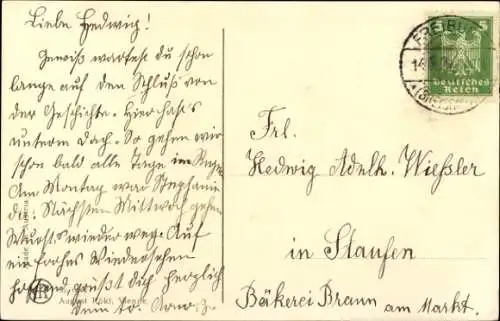 Liebe Hedwig!
Gewiß wartest du schon
lange auf den Schluß von
der Geschichte. Hier hast's
unterm Dach. So gehen wir
schon bald alle Tage im
Am Montag war Stephanie
da. Nächsten Mittwoch gehen
wieder weg. Auf
ein frohes Wiedersehen
hoffend, grüßt dich herzlich
August
Vienne
FREIBURG
5
Deutsches
Reich
Frl.
Hedwig Adelh. Wießler
in Staufen
Bäkerei Braun am Markt.